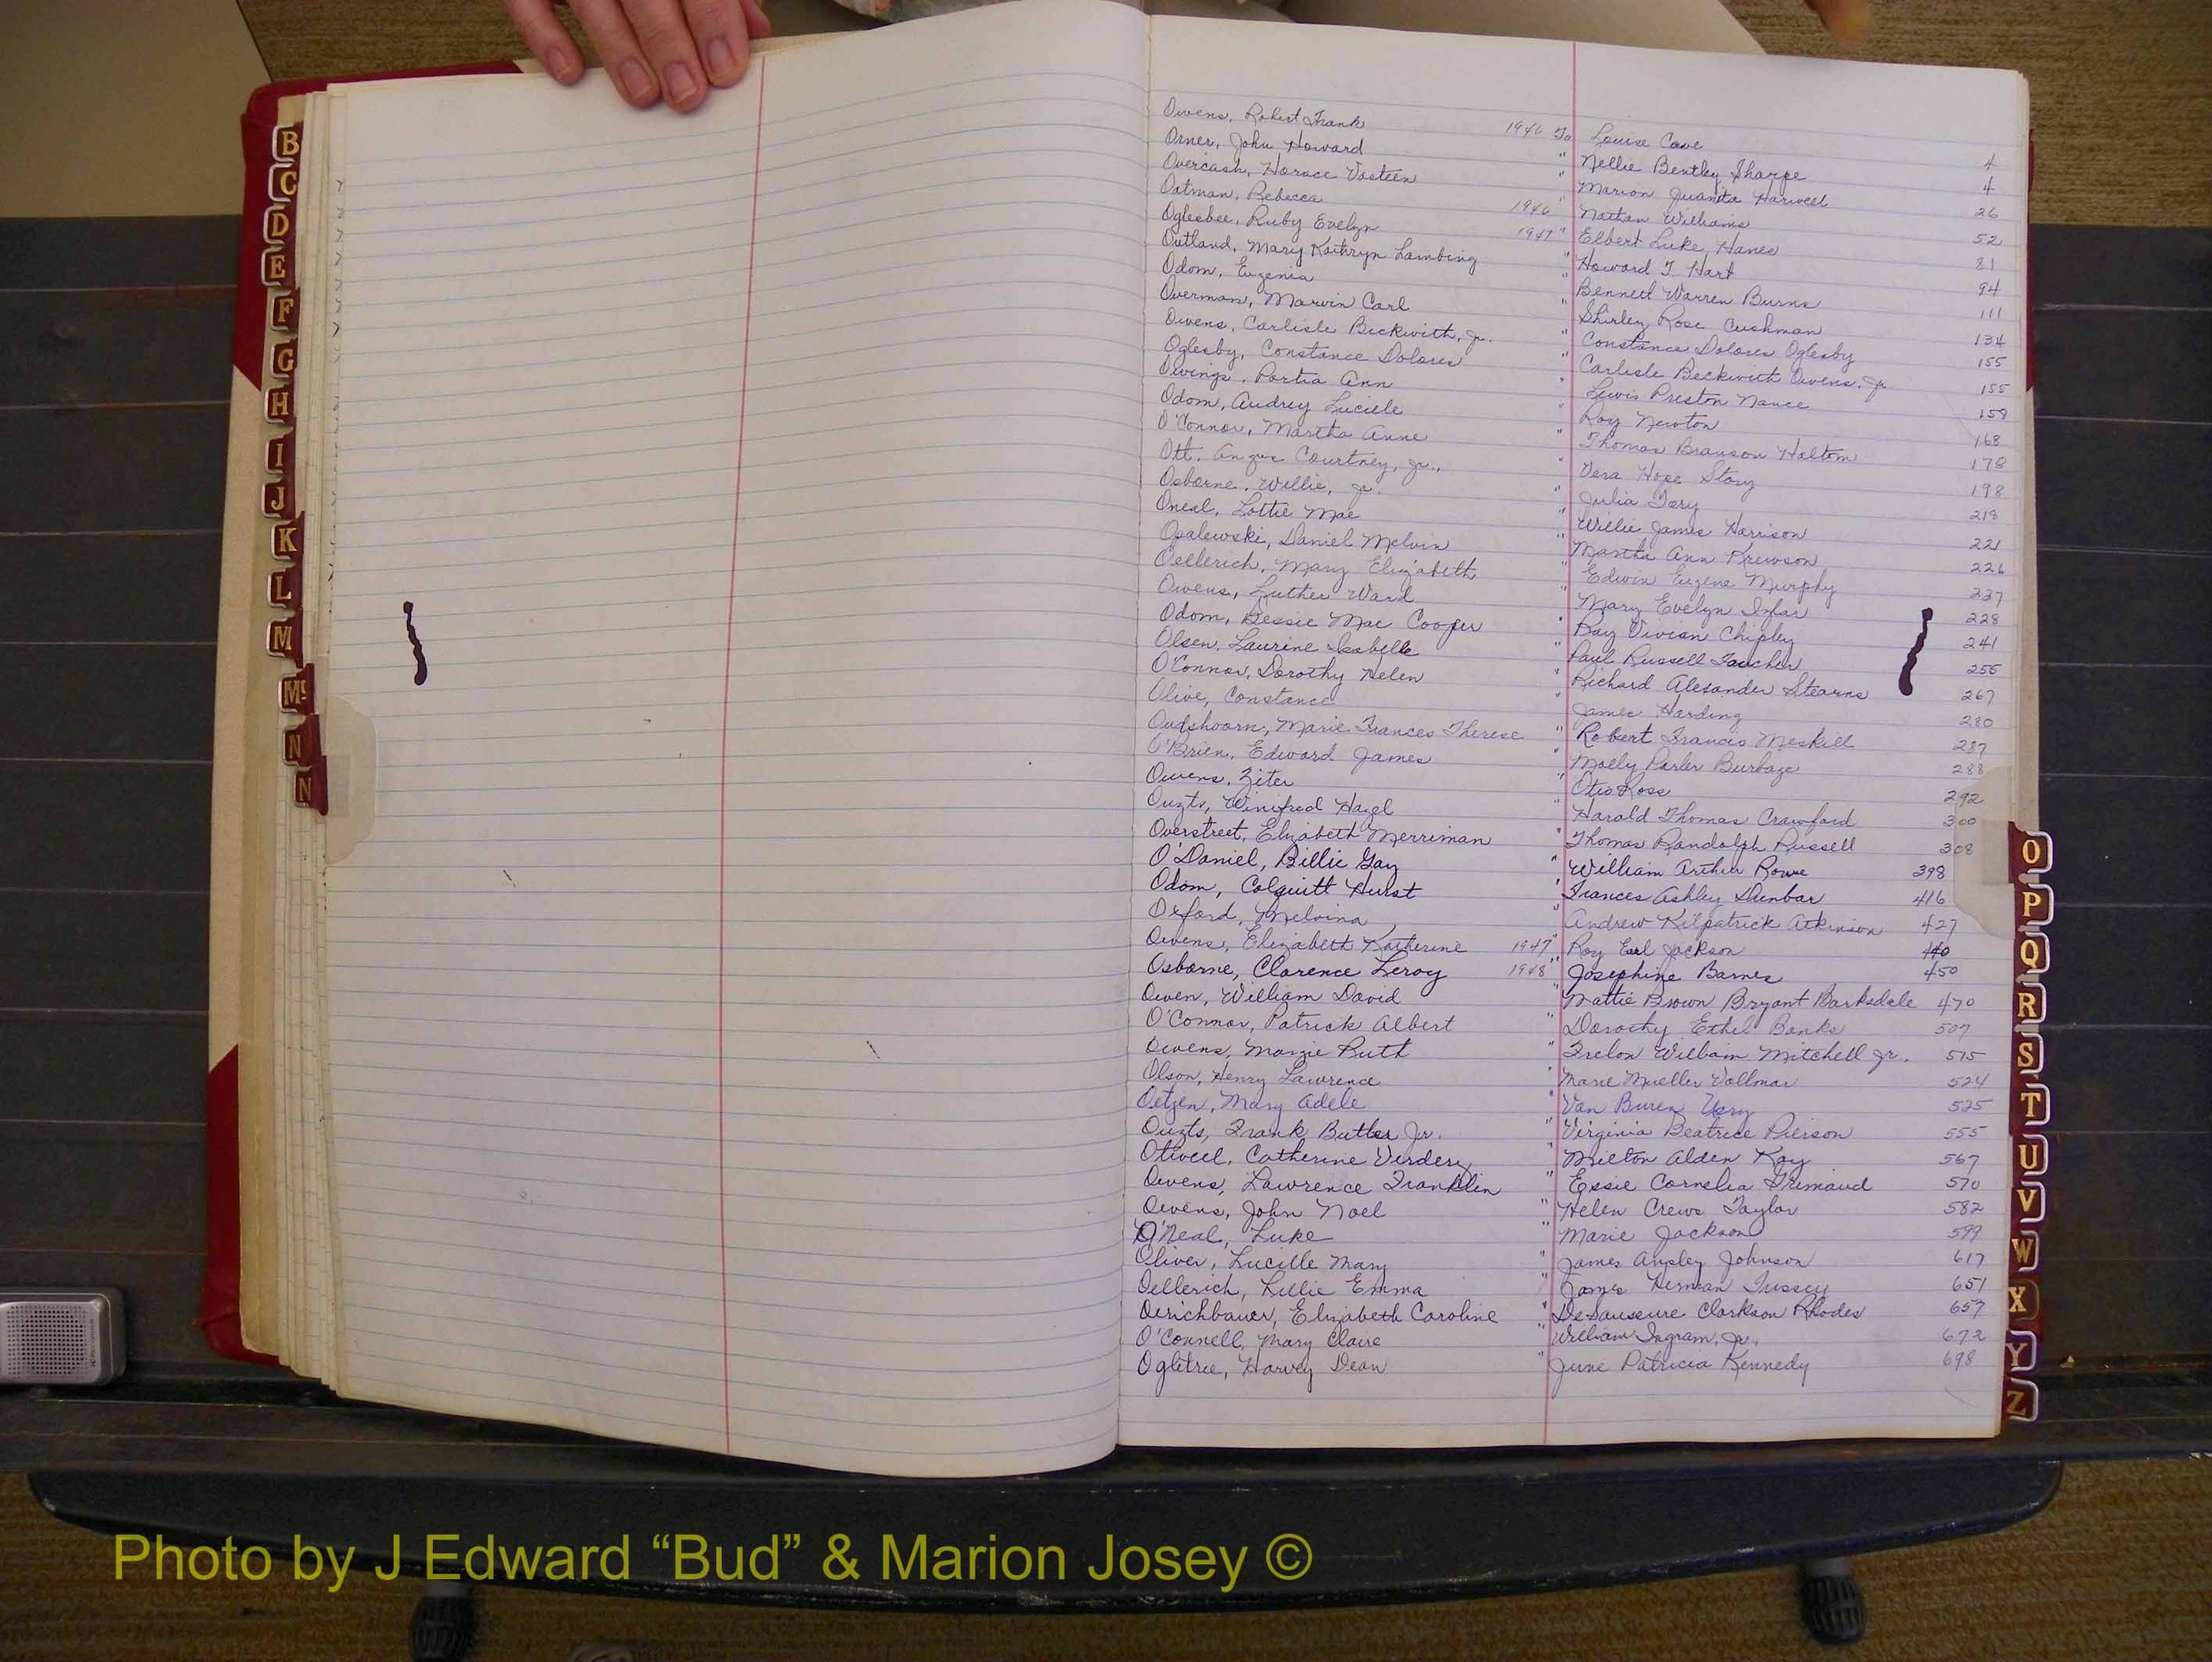 Owens, Robert Frank 1946 To Louise Cave 4
Orner, John Howard " Nellie Bentley Sharpe 4
Overcash, Horace Vasteen " Marion Juanita Harwell 26
Oatman, Rebecca 1946 " Nathan Williams 52
Oglesbee, Ruby Evelyn 1947 " Elbert Luke Hanes 81
Outland, Mary Kathryn Lambing " Howard T. Hart 94
Odom, Eugenia " Bennett Warren Burns 111
Overman, Marvin Carl " Shirley Rose Cushman 134
Owens, Carlisle Beckwith, Jr. " Constance Dolores Oglesby 155
Oglesby, Constance Dolores " Carlisle Beckwith Owens, Jr. 155
Owings, Portia Ann " Lewis Preston Nance 158
Odom, Audrey Lucille " Roy Newton 168
O'Connor, Martha Anne " Thomas Branson Haltom 178
Ott, Angus Courtney, Jr., " Vera Hope Story 198
Osborne, Willie, Jr. " Julia Tary 218
Oneal, Lottie Mae " Willie James Harrison 221
Opalewski, Daniel Melvin " Martha Ann Krewson 226
Oellerich, Mary Elizabeth " Edwin Eugene Murphy 227
Owens, Luther Ward " Mary Evelyn 228
Odom, Bessie Mae Cooper " Ray Vivian Chipley 241
Olsen, Laurine Isabelle " Paul Russell Faucher 255
O'Connor, Dorothy Helen " Richard Alexander Stearns 267
Olive, Constance " James Harding 280
Oudshoorn, Marie Frances Therese " Robert Francis Meskill 287
O'Brien, Edward James " Molly Parler Burbage 288
Owens, Ziter " Otis Ross 292
Ouzts, Winifred Hazel " Harald Thomas Crawford 300
Overstreet, Elizabeth Merriman " Thomas Randolph Russell 308
O'Daniel, Billie Gay " William Arthur Rowe 398
Odom, Colquitt Hurst " Frances Ashley Dunbar 416
Oxford, Melvina " Andrew Kilpatrick Atkinson 427
Owens, Elizabeth Katherine 1947 " Roy Earl Jackson 440
Osborne, Clarence Leroy 1948 " Josephine Barnes 450
Owen, William David " Mattie Brown Bryant Barksdale 470
O'Connor, Patrick Albert " Dorothy Ethel Banks 507
Owens, Margie Ruth " Trelon William Mitchell Jr. 515
Olson, Henry Lawrence " Marie Mueller Vollmar 524
Oetjen, Mary Adele " Van Buren Usry 525
Ouzts, Frank Butler Jr. " Virginia Beatrice Pierson 555
Otwell, Catherine Verdery " Milton Alden Kay 567
Owens, Lawrence Franklin " Essie Cornelia Grimaud 570
Owens, John Noel " Helen Crews Taylor 582
O'Neal, Luke " Marie Jackson 599
Oliver, Lucille Mary " James Ansley Johnson 617
Oellerich, Lillie Emma " James Herman Tussey 651
Oerichbauer, Elizabeth Caroline " DeSaussure Clarkson Rhodes 657
O'Connell, Mary Claire " William Ingram, Jr. 672
Ogletree, Harvey Dean " June Patricia Kennedy 698
B
C
D
E
F
G
H
I
J
K
L
M
Mc
N
N
O
P
Q
R
S
T
U
V
W
X
Y
Z
Photo by J Edward “Bud” & Marion Josey ©